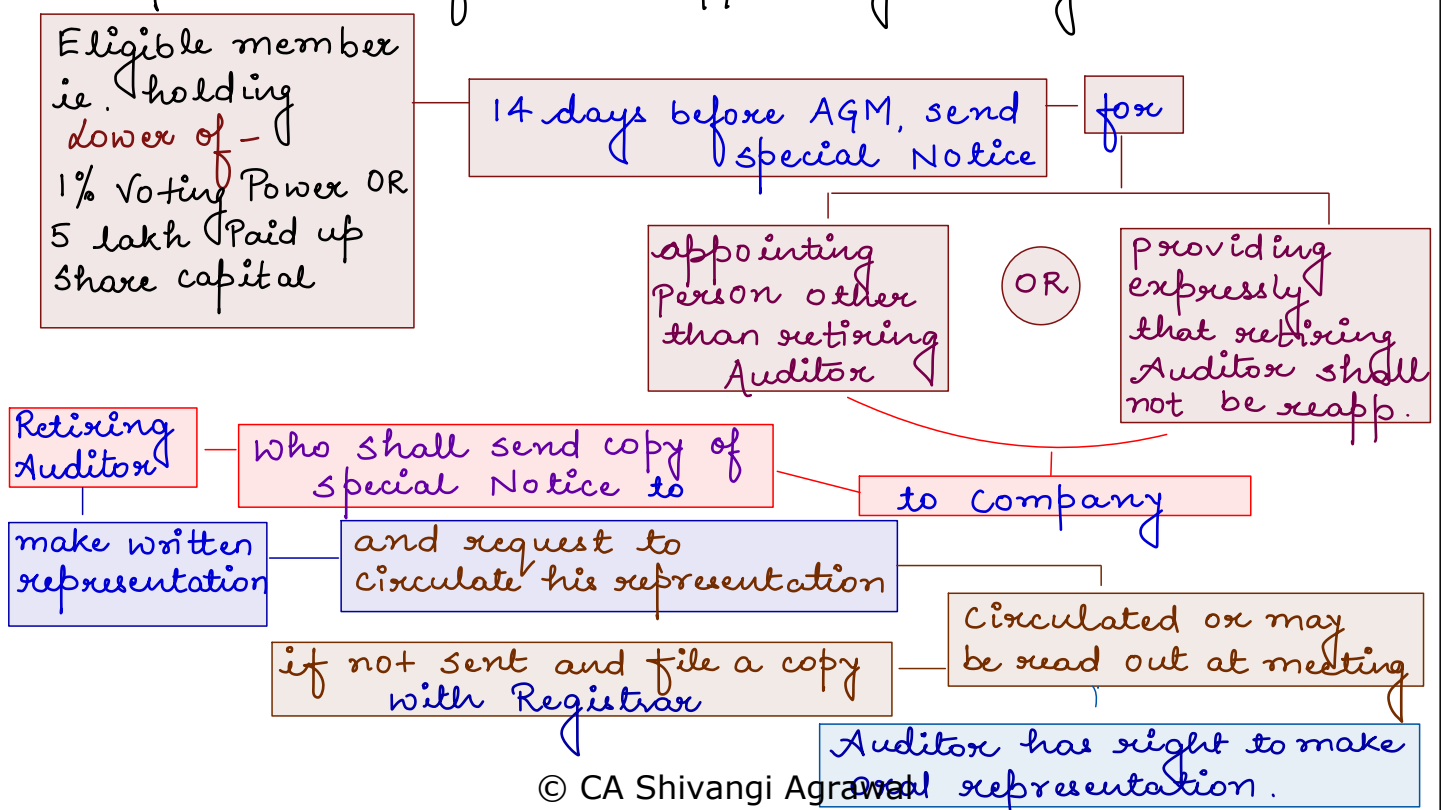 Eligible member
ie. holding
Lower of -
1% Voting Power OR
5 lakh Paid up
Share capital
14 days before AGM, send
special Notice
for
appointing
Person other
than retiring
Auditor
OR
Providing
expressly
that retiring
Auditor shall
not be reapp.
Retiring
Auditor
who shall send copy of
special Notice to
to Company
make written
representation
and request to
circulate his representation
Circulated or may
be read out at meeting
if not sent and file a copy
with Registrar
Auditor has right to make
oral representation.
© CA Shivangi Agrawal